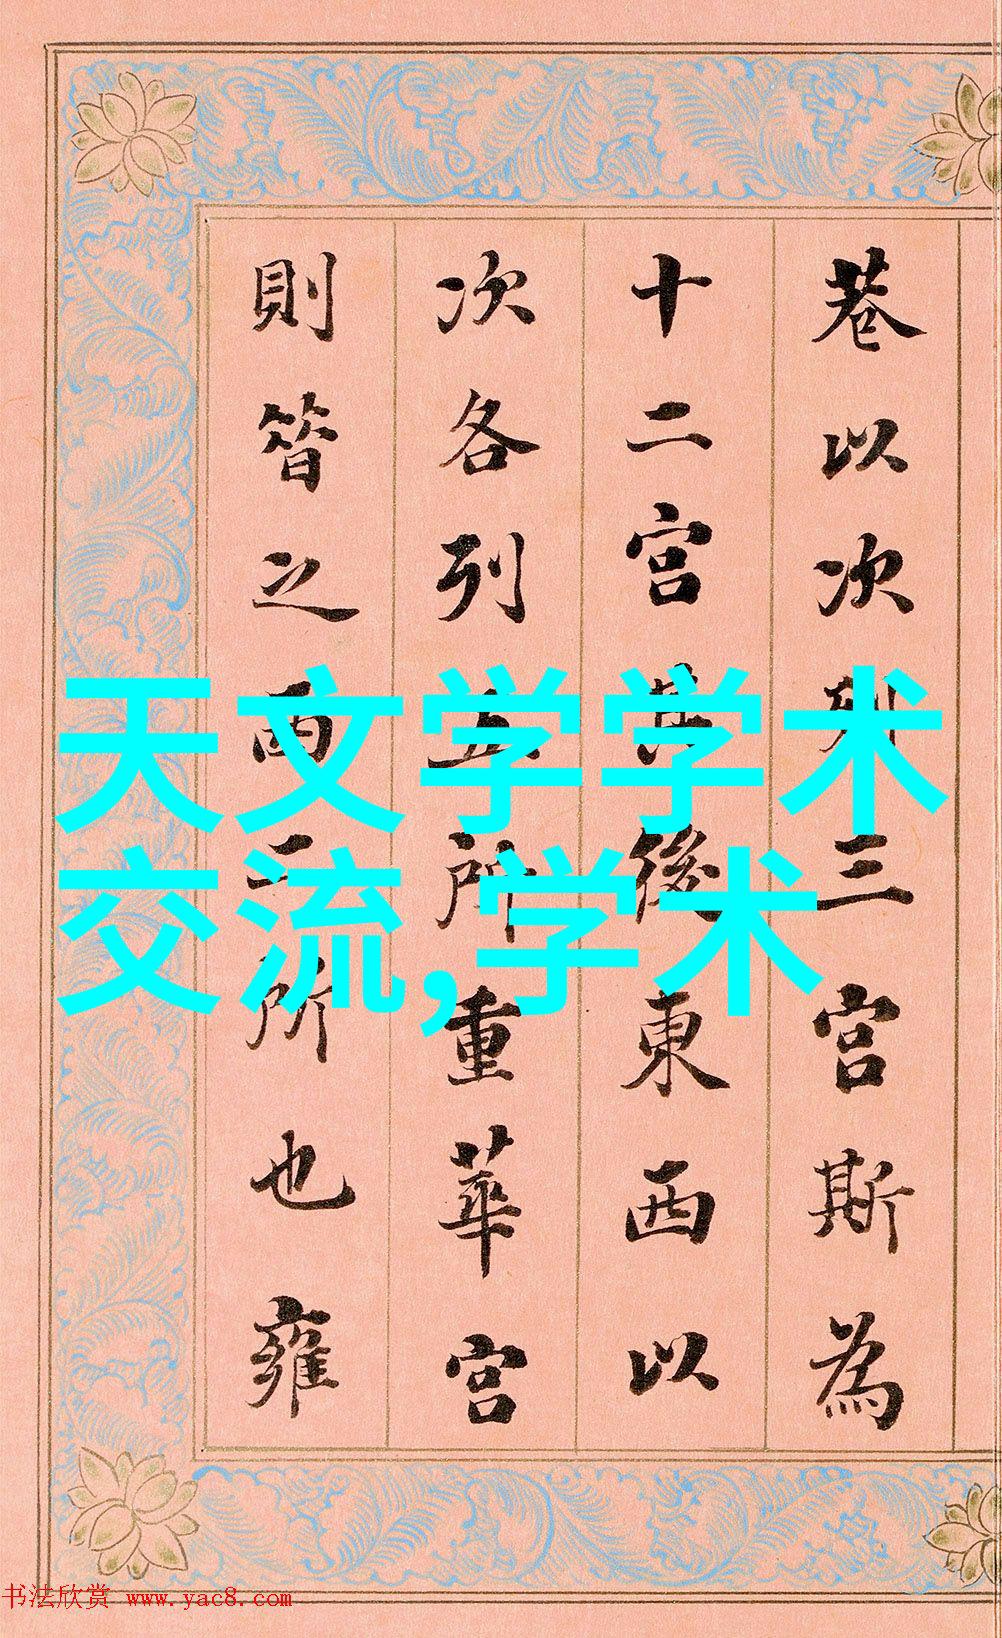 巷以次列三宮斯為
十二宮其後東西以
次各列五所重華宮
則昔之西二所也雍
天文学学术
交流,学术
书法欣赏 www.yac8.com